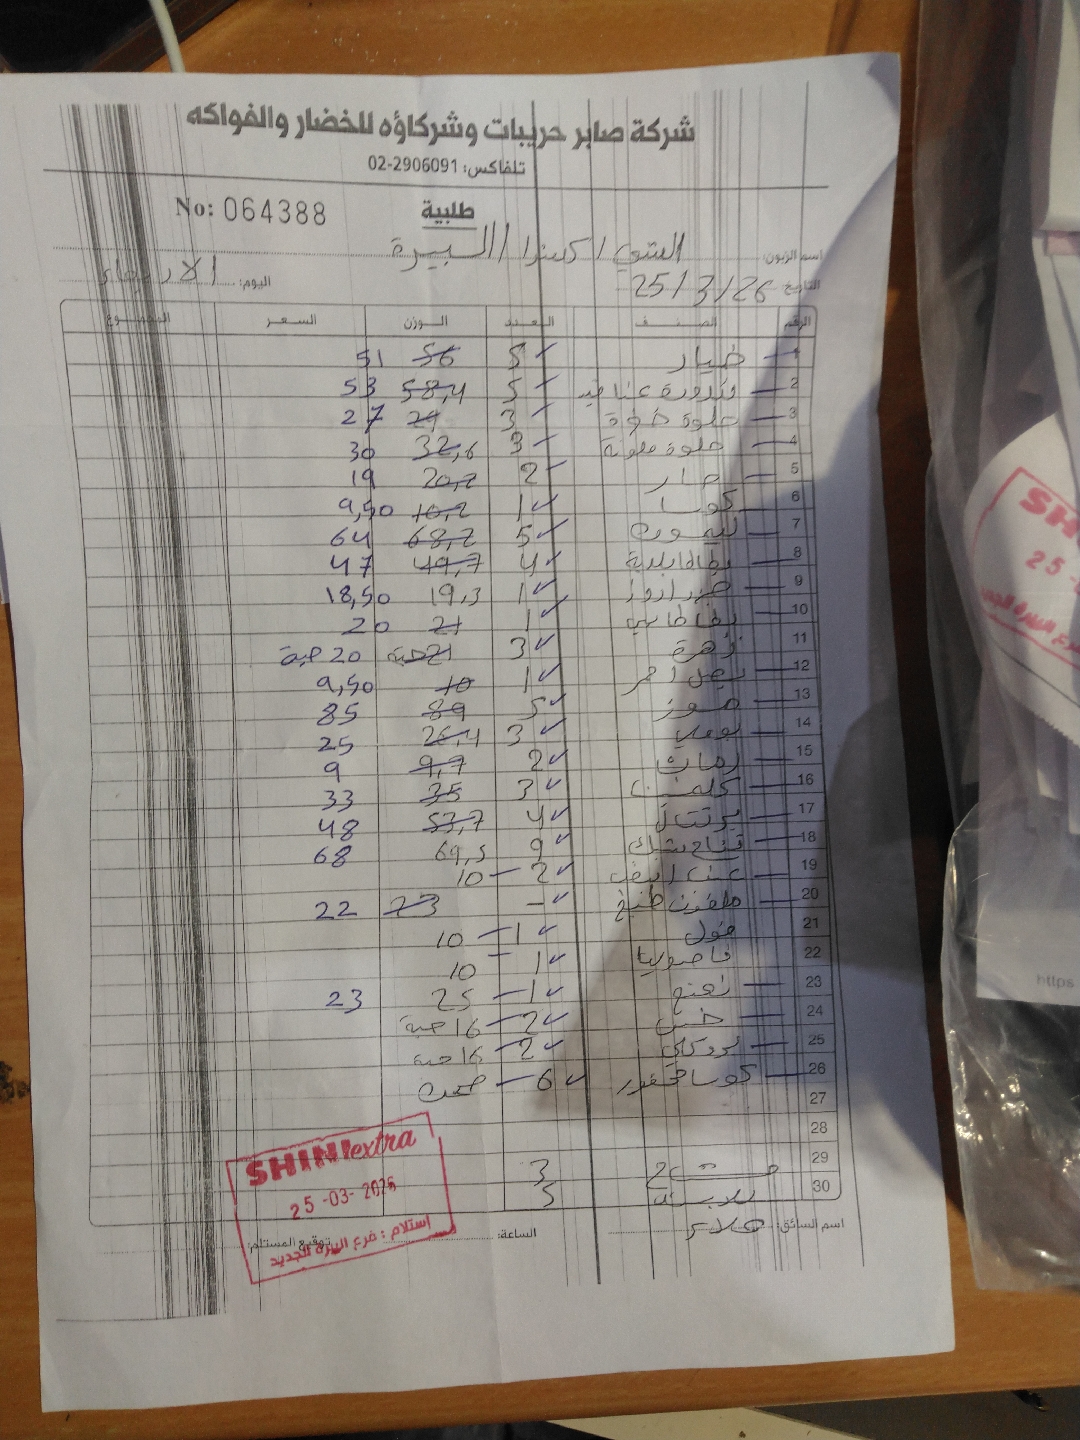 شركة صابر حريبات وشركاؤه للخضار والفواكه
تلفاكس: 02-2906091
No: 064388
طلبية
اسم الزبون: الشني اكسترا / البيرة
التاريخ 25/3/26 اليوم: الاربعاء
الرقم الصنف العدد الوزن السعر المجموع
1 خيار 5 56 51
2 بندورة عناقيد 5 58,4 53
3 حلوة 3 29 27
4 حلوة ملونة 3 32,6 30
5 حار 2 20,2 19
6 كوسا 1 10,2 9,50
7 ليمون 5 68,2 64
8 بطاطا بلدية 4 49,7 47
9 1 19,3 18,50
10 بطاطا 1 21 20
11 زهرة 3 21 حبة 20 حبة
12 بصل احمر 1 10 9,50
13 موز 5 89 85
14 بوملي 3 26,4 25
15 2 9,7 9
16 كلمنتينا 3 35 33
17 برتقال 4 53,7 48
18 تفاح 9 69,5 68
19 عنب ابيض 2 10
20 ملفوف طبيخ - 23 22
21 فول 1 10
22 فاصوليا 1 10
23 نعنع 1 25 23
24 خس 2 16 حبة
25 بروكلي 2 16 حبة
26 كوسا محفور 6 صحن
27
28
29 3
30 5
اسم السائق: الساعة: توقيع المستلم:
SHINI extra
25-03-2026
استلام : فرع البيرة الجديد
SH
25-
https